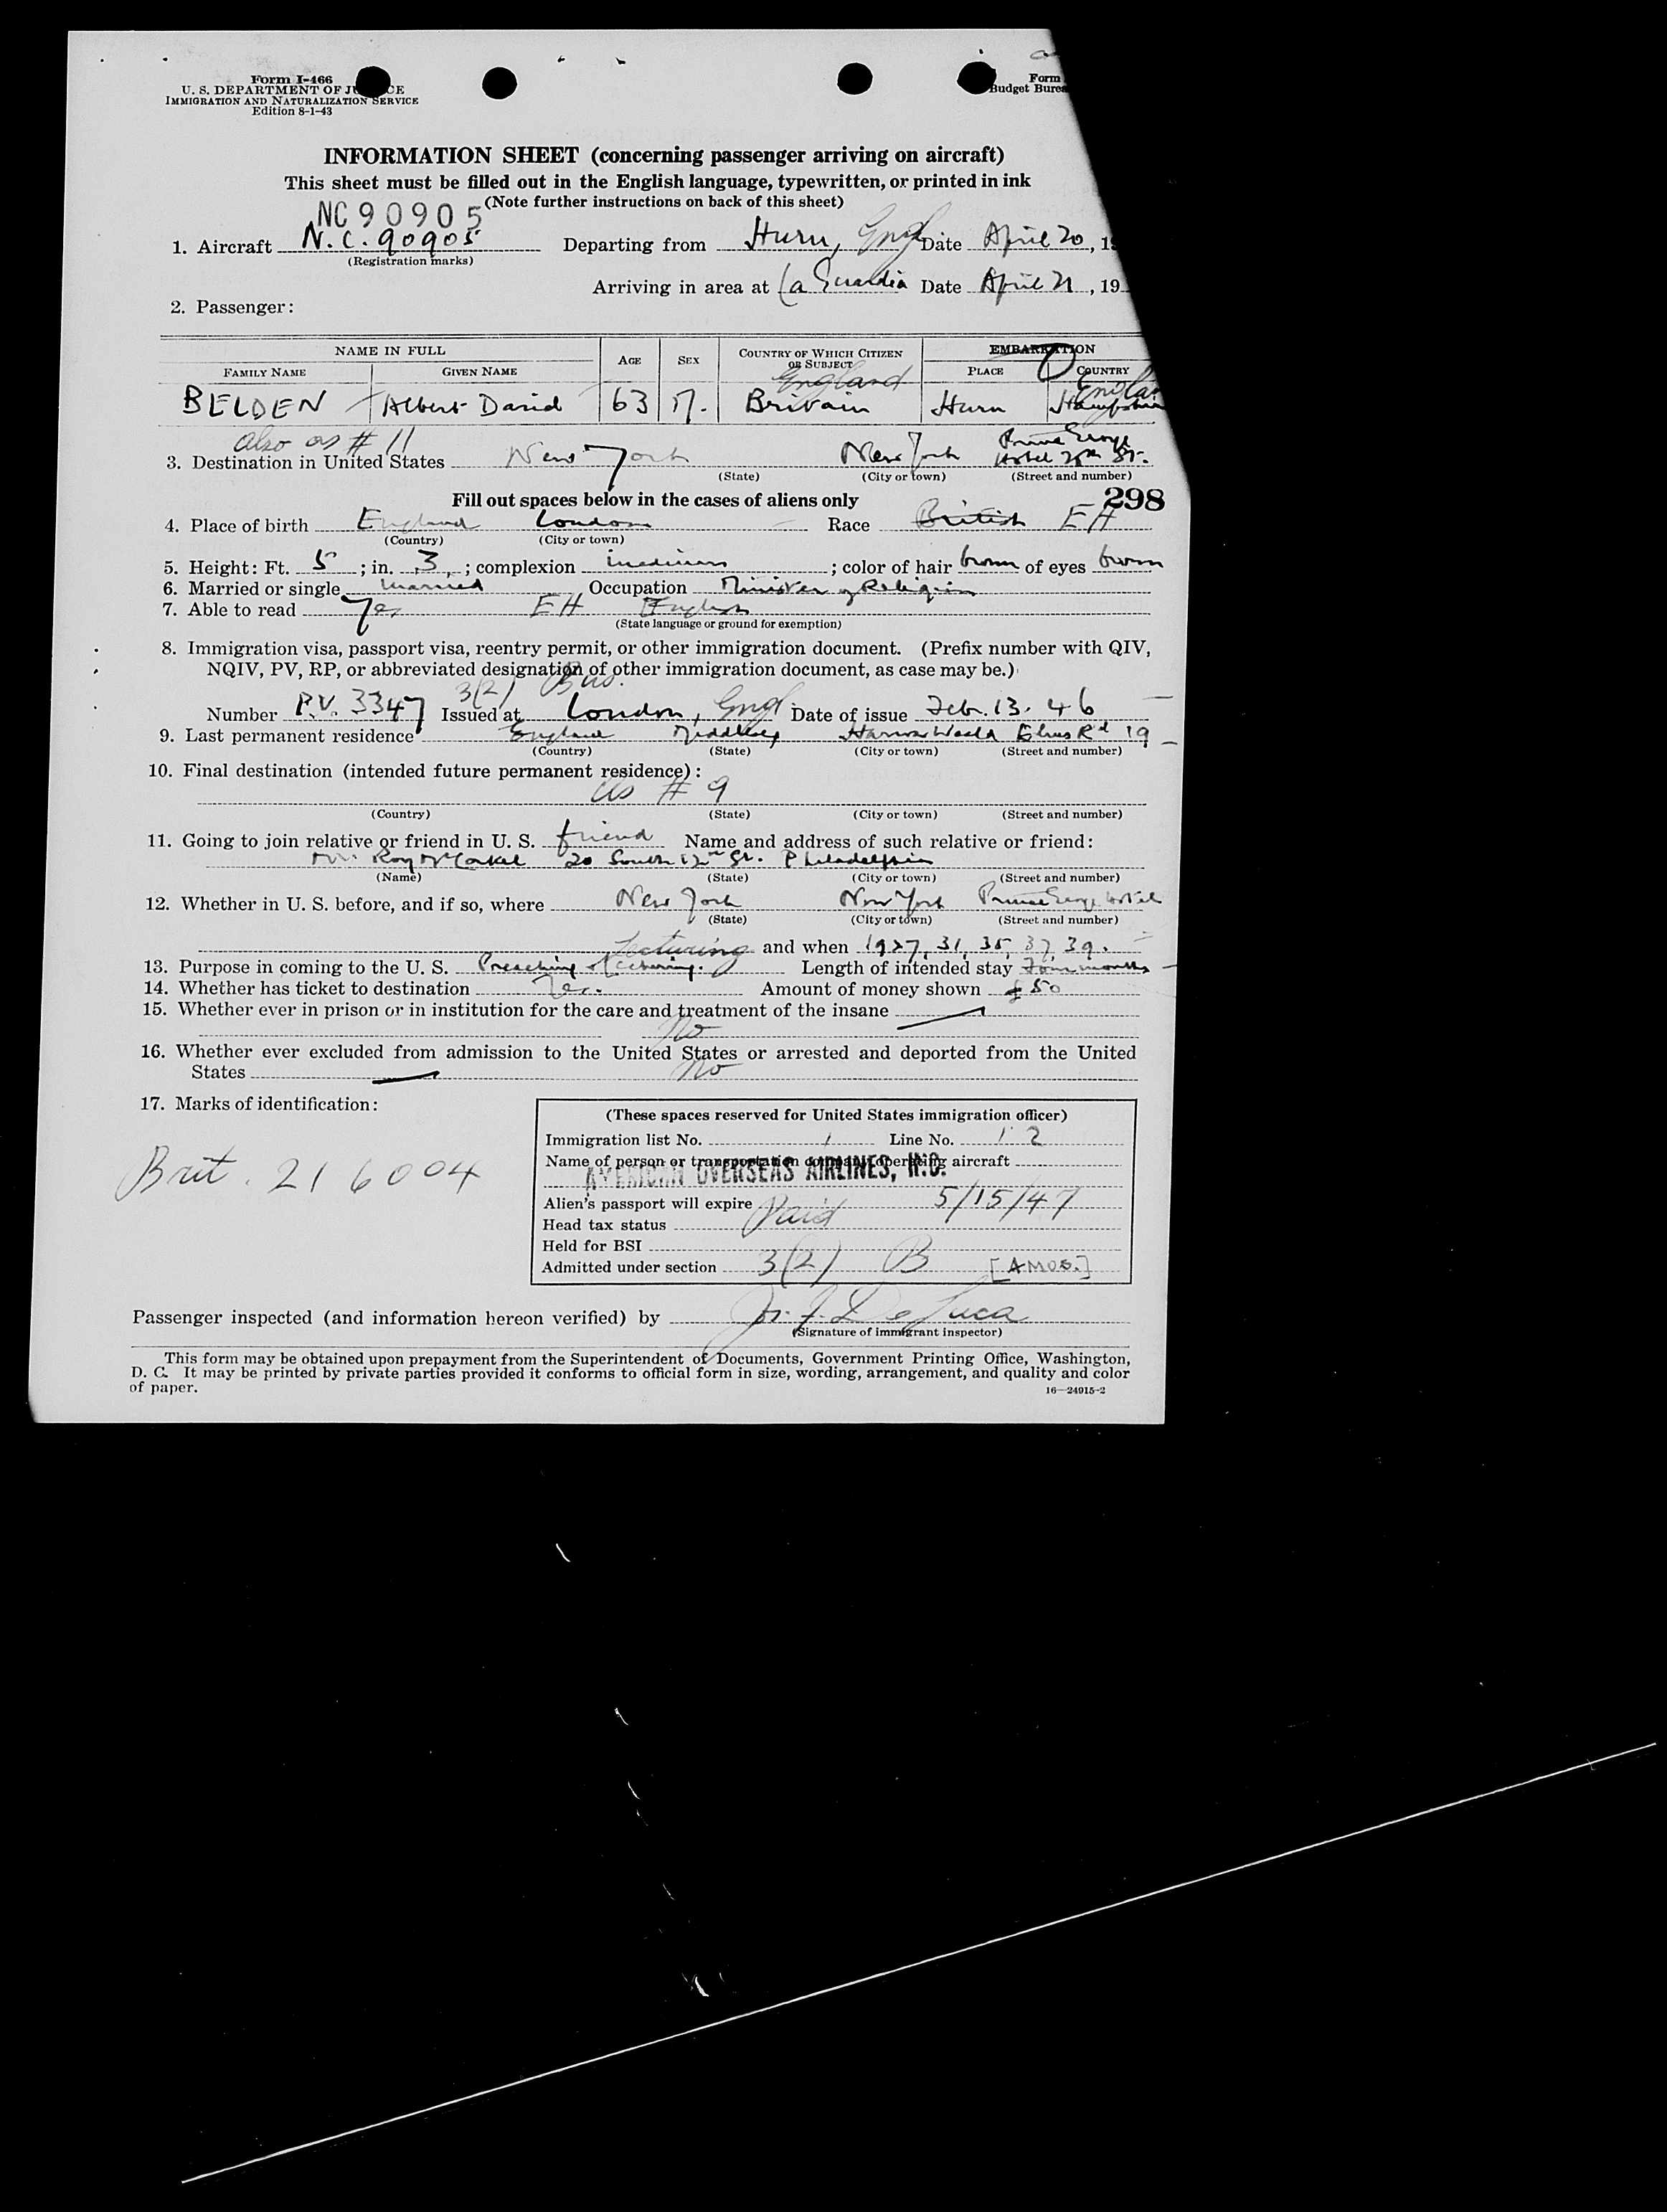 Form I-466
U. S. DEPARTMENT OF JU CE
IMMIGRATION AND NATURALIZATION SERVICE
Edition 8-1-43
Form
Budget Burea
INFORMATION SHEET (concerning passenger arriving on aircraft)
This sheet must be filled out in the English language, typewritten, or printed in ink
(Note further instructions on back of this sheet)
NC90905
1. Aircraft N.C. 90905 Departing from Hurn, Engl Date April 20, 19
(Registration marks)
Arriving in area at La Guardia Date April 21, 19
2. Passenger:
NAME IN FULL AGE SEX COUNTRY OF WHICH CITIZEN OR SUBJECT EMBARKATION
FAMILY NAME GIVEN NAME PLACE COUNTRY
England Englan
BELDEN Albert David 63 M. Britain Hurn Hampshire
also as # 11
Prince George
3. Destination in United States New York New York Hotel 28th St.
(State) (City or town) (Street and number)
Fill out spaces below in the cases of aliens only 298
4. Place of birth England London Race British EH
(Country) (City or town)
5. Height: Ft. 5 ; in. 3 ; complexion medium ; color of hair brown of eyes brown
6. Married or single married Occupation Minister of Religion
7. Able to read Yes EH English
(State language or ground for exemption)
8. Immigration visa, passport visa, reentry permit, or other immigration document. (Prefix number with QIV,
NQIV, PV, RP, or abbreviated designation of other immigration document, as case may be.)
3(2) Bus.
Number P.V. 3347 Issued at London, Engl Date of issue Feb. 13. 46
9. Last permanent residence England Middlesex Harrow Weald Elms Rd 19
(Country) (State) (City or town) (Street and number)
10. Final destination (intended future permanent residence):
as # 9
(Country) (State) (City or town) (Street and number)
11. Going to join relative or friend in U. S. friend Name and address of such relative or friend:
Mr. Roy McCorkel 20 South 12th St. Philadelphia
(Name) (State) (City or town) (Street and number)
12. Whether in U. S. before, and if so, where New York New York Prince George Hotel
(State) (City or town) (Street and number)
Lecturing and when 1927, 31, 35, 37, 39.
13. Purpose in coming to the U. S. Preaching & lecturing. Length of intended stay Four months
14. Whether has ticket to destination Yes. Amount of money shown £50
15. Whether ever in prison or in institution for the care and treatment of the insane
No
16. Whether ever excluded from admission to the United States or arrested and deported from the United
States No
17. Marks of identification:
Brit. 216004
(These spaces reserved for United States immigration officer)
Immigration list No. 1 Line No. 12
Name of person or transportation company operating aircraft
AMERICAN OVERSEAS AIRLINES, INC.
Alien's passport will expire 5/15/47
Head tax status Paid
Held for BSI
Admitted under section 3(2) B [4 MOS.]
Passenger inspected (and information hereon verified) by Jos. J. De Luca
(Signature of immigrant inspector)
This form may be obtained upon prepayment from the Superintendent of Documents, Government Printing Office, Washington,
D. C. It may be printed by private parties provided it conforms to official form in size, wording, arrangement, and quality and color
of paper. 16—24915-2